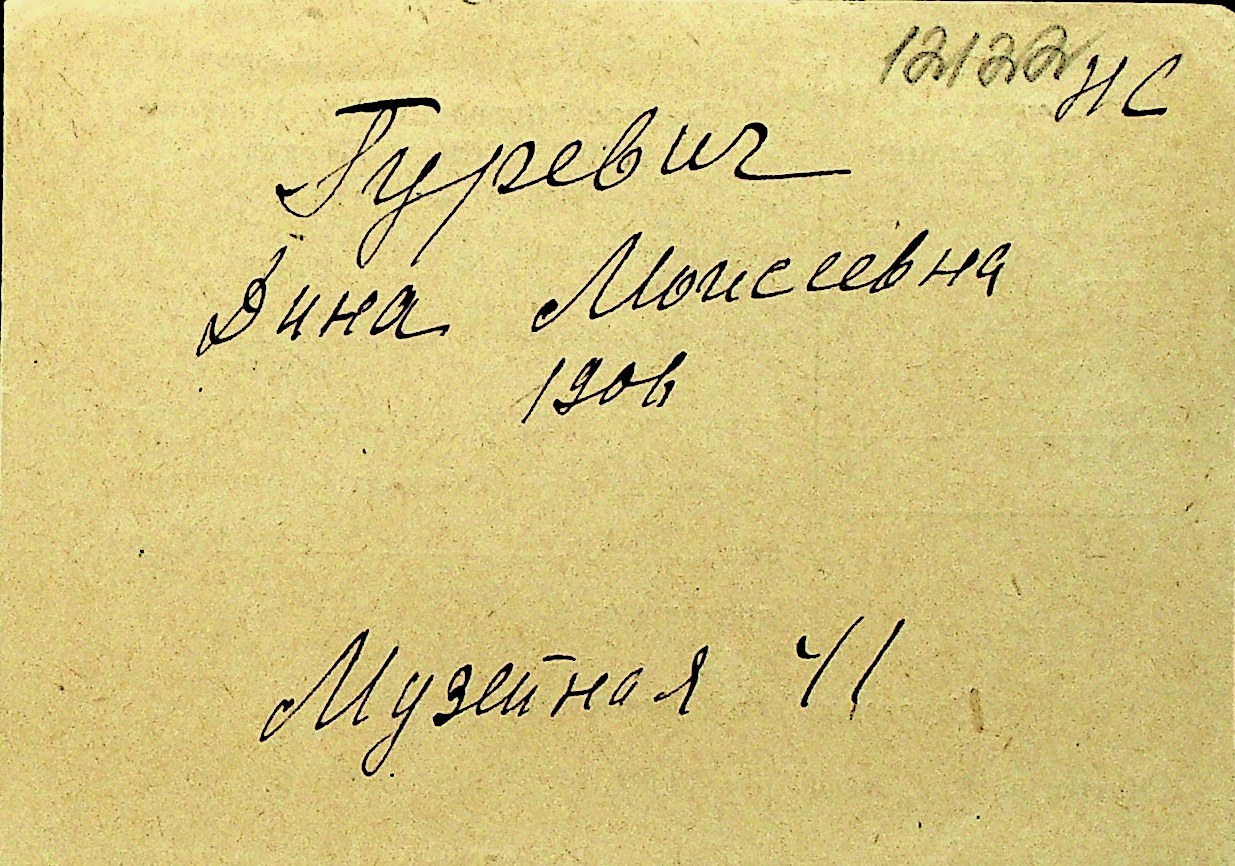 12122 НС
Гуревич
Дина Моисеевна
1906
Музейная 41